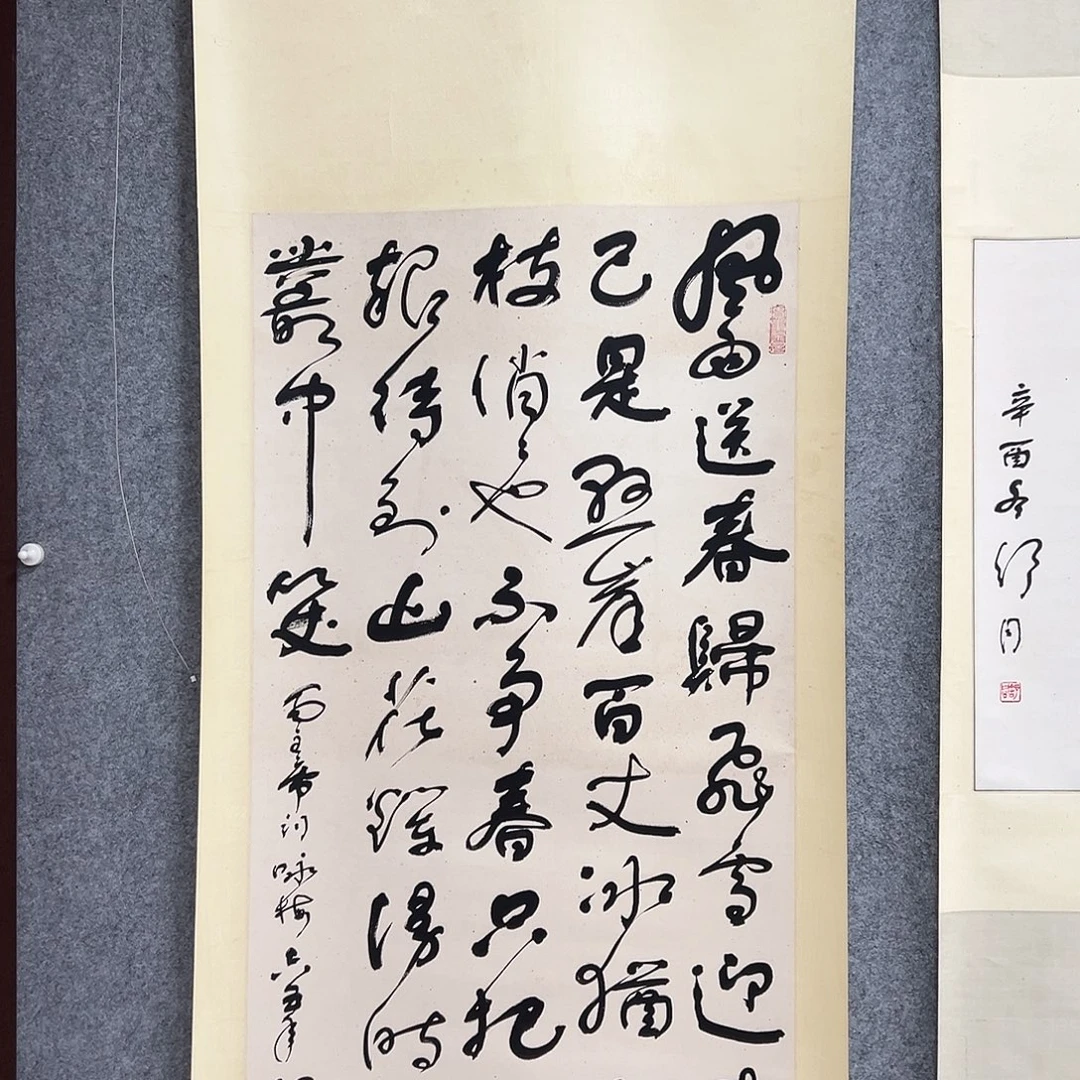 風雨送春歸飛雪迎
已是懸崖百丈冰猶
枝俏〻也不争春只把
報待到山花爛漫時
叢中笑
主席詞咏梅六五年
辛酉冬